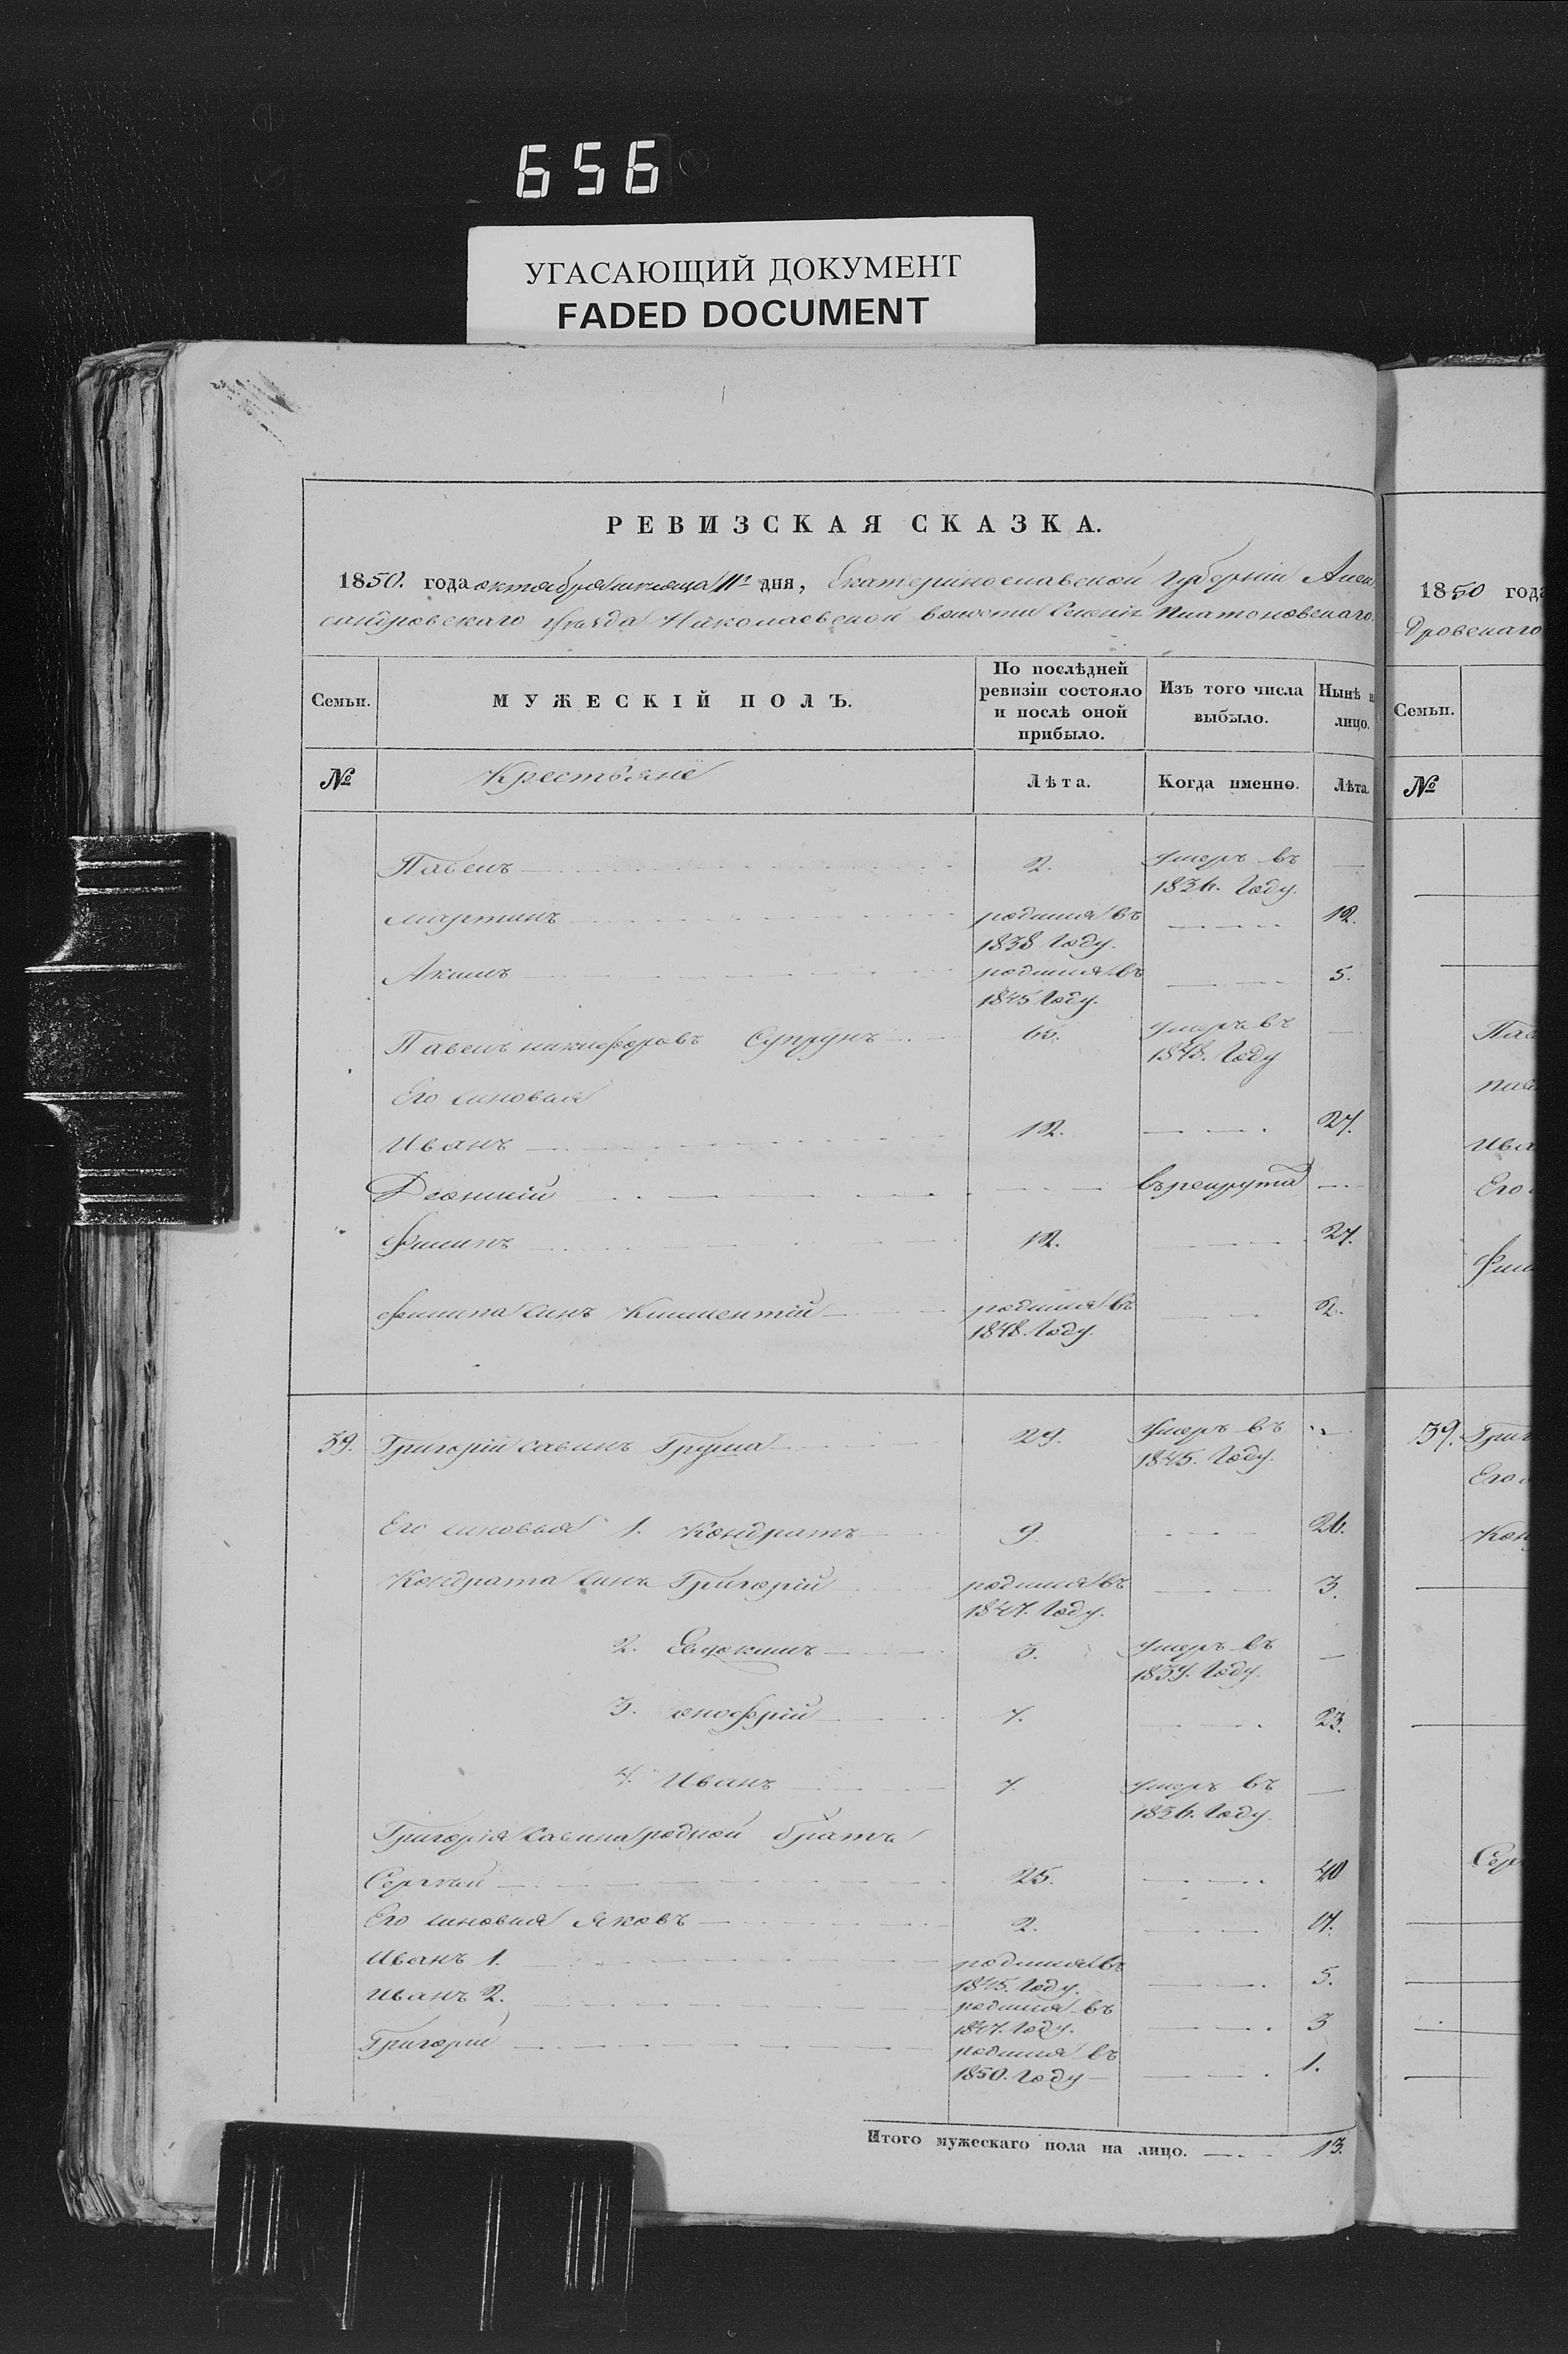 656
УГАСАЮЩИЙ ДОКУМЕНТ
FADED DOCUMENT
РЕВИЗСКАЯ СКАЗКА.
1850. года октября месяца 11го дня, Екатеринославской Губернии Алек
сандровскаго уезда Николаевской волости Селенія Платоновскаго
Семьи.
МУЖЕСКІЙ ПОЛЪ.
По послѣдней ревизіи состояло и послѣ оной прибыло.
Изъ того числа выбыло.
Нынѣ н лицо.
№ Крестьяне Лѣта. Когда именно. Лѣта.
Павелъ 2. умеръ въ 1836. Году. —
мартинъ родился въ 1838 Году. — 12.
Акимъ родился въ 1845 Году. — 5.
Павелъ никифоровъ Супрунъ 65. умеръ въ 1848. Году —
Его сыновья
Иванъ 12. — 27.
Леонтій — въ рекрута —
Филипъ 12. — 27.
Филипа сынъ Климентій родился въ 1848. Году. — 2.
39. Григорій савинъ Груша 29. умеръ въ 1845. Году. —
Его сыновья 1. Кондратъ 9. — 26.
Кондрата сынъ Григорій родился въ 1847. Году. — 3.
2. Евдокимъ 3. умеръ въ 1837. Году. —
3. онофрій 7. — 23.
4. Иванъ 7. умеръ въ 1836. Году. —
Григорія Савина родной братъ
Сергѣй 25. — 40
Его сыновья яковъ 2. — 17.
Иванъ 1. родился въ 1845. Году. — 5.
Иванъ 2. родился въ 1847. Году. — 3
Григорій родился въ 1850. Году — 1.
Итого мужескаго пола на лицо. 13.
1850 года
дровскаго
Семьи.
№
Пав
Ива
Его
Фил
39. Григ
Его
Кон
Сер